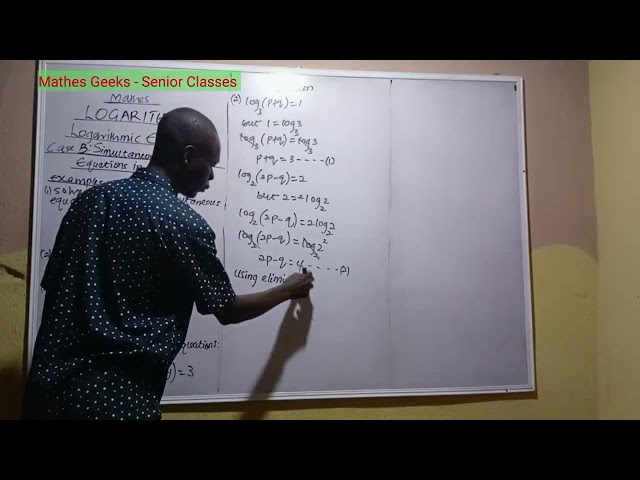 Mathes Geeks - Senior Classes
Mathes
LOGARITH
Logarithmic E
Case B: Simultaneous
Equations in
examples
(1) solve
equa
(2)
equations:
)=3
(2) log₃(p+q)=1
but 1=log₃3
log₃(p+q)=log₃3
p+q=3----(1)
log₂(2p-q)=2
but 2=2log₂2
log₂(2p-q)=2log₂2
log₂(2p-q)=log₂2²
2p-q=4----(2)
using elimi